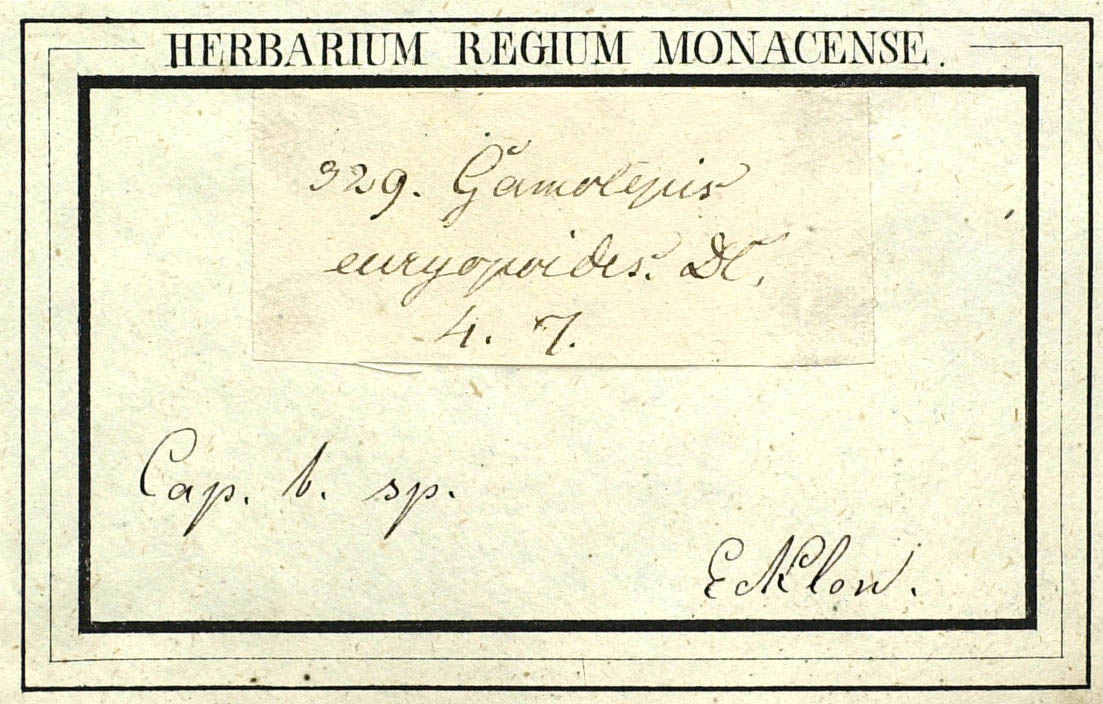 HERBARIUM REGIUM MONACENSE.
329. Gamolepis
euryopoides. DC.
4. 7.
Cap. b. sp.
Ecklon.